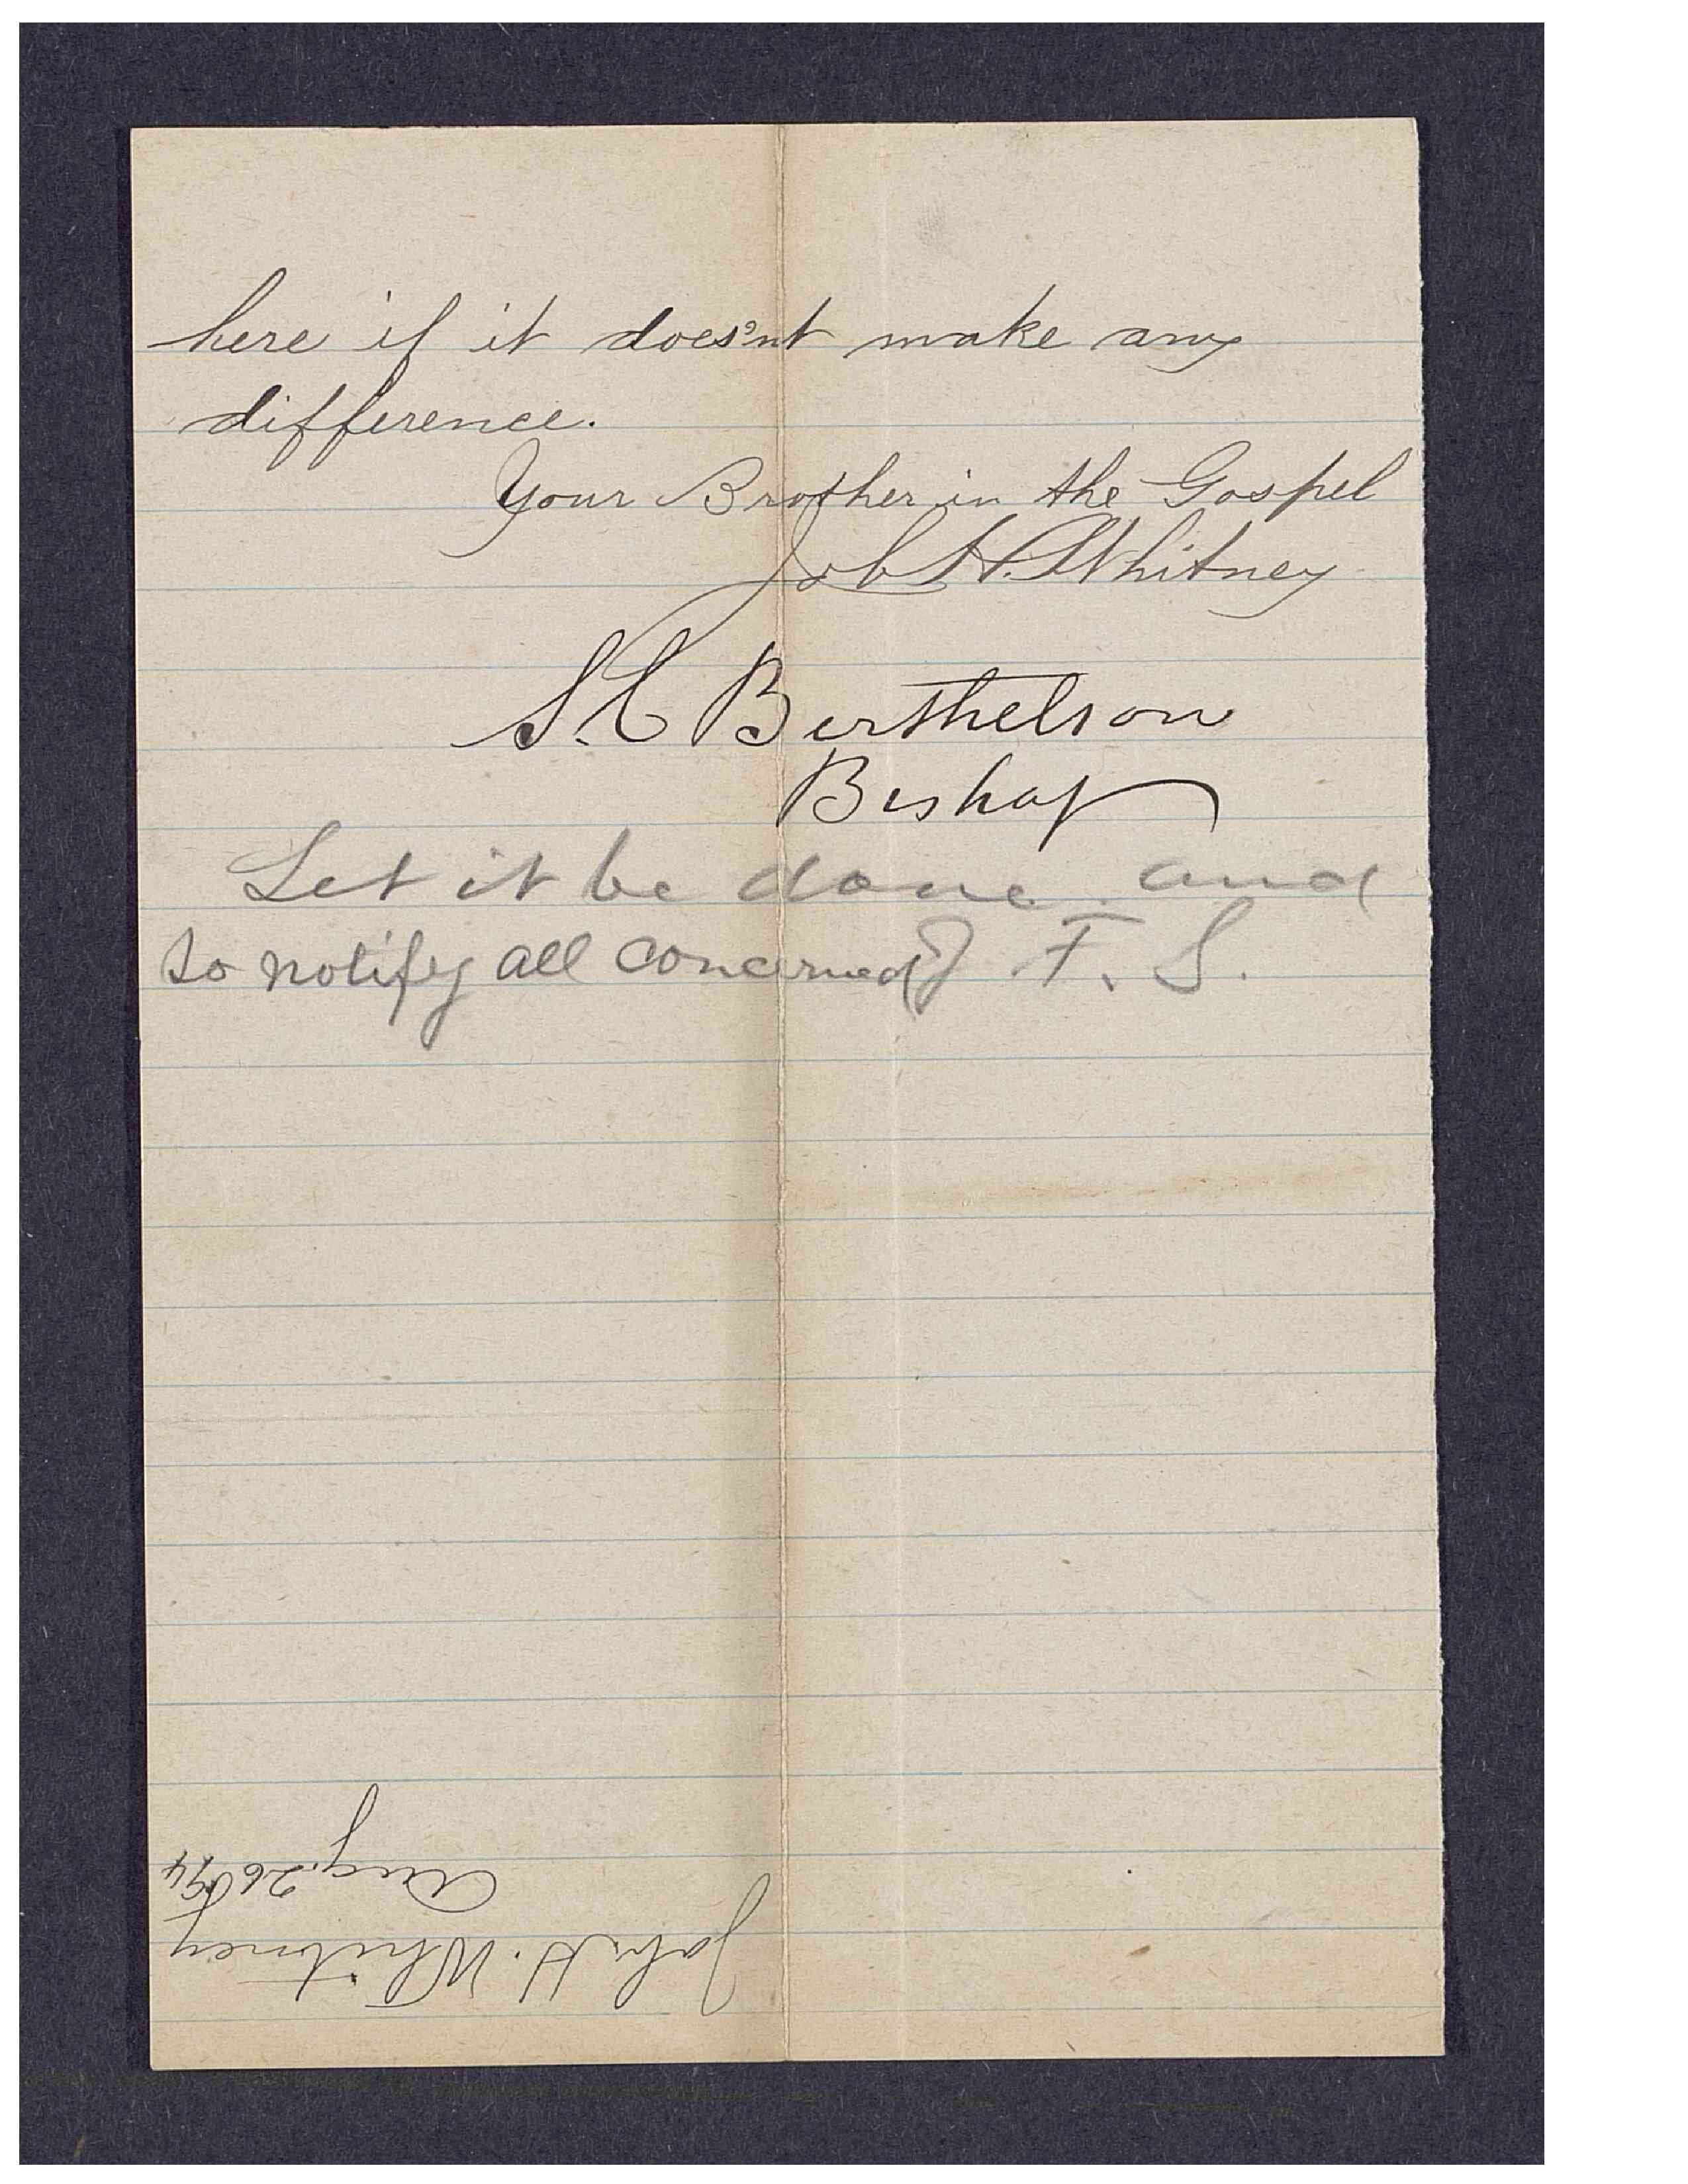 here if it does'nt make any
difference.
Your Brother in the Gospel
Job H. Whitney
S. C Berthelson
Bishop
Let it be done. and
so notify all concerned J. F. S.
Job H. Whitney
Aug. 26 94